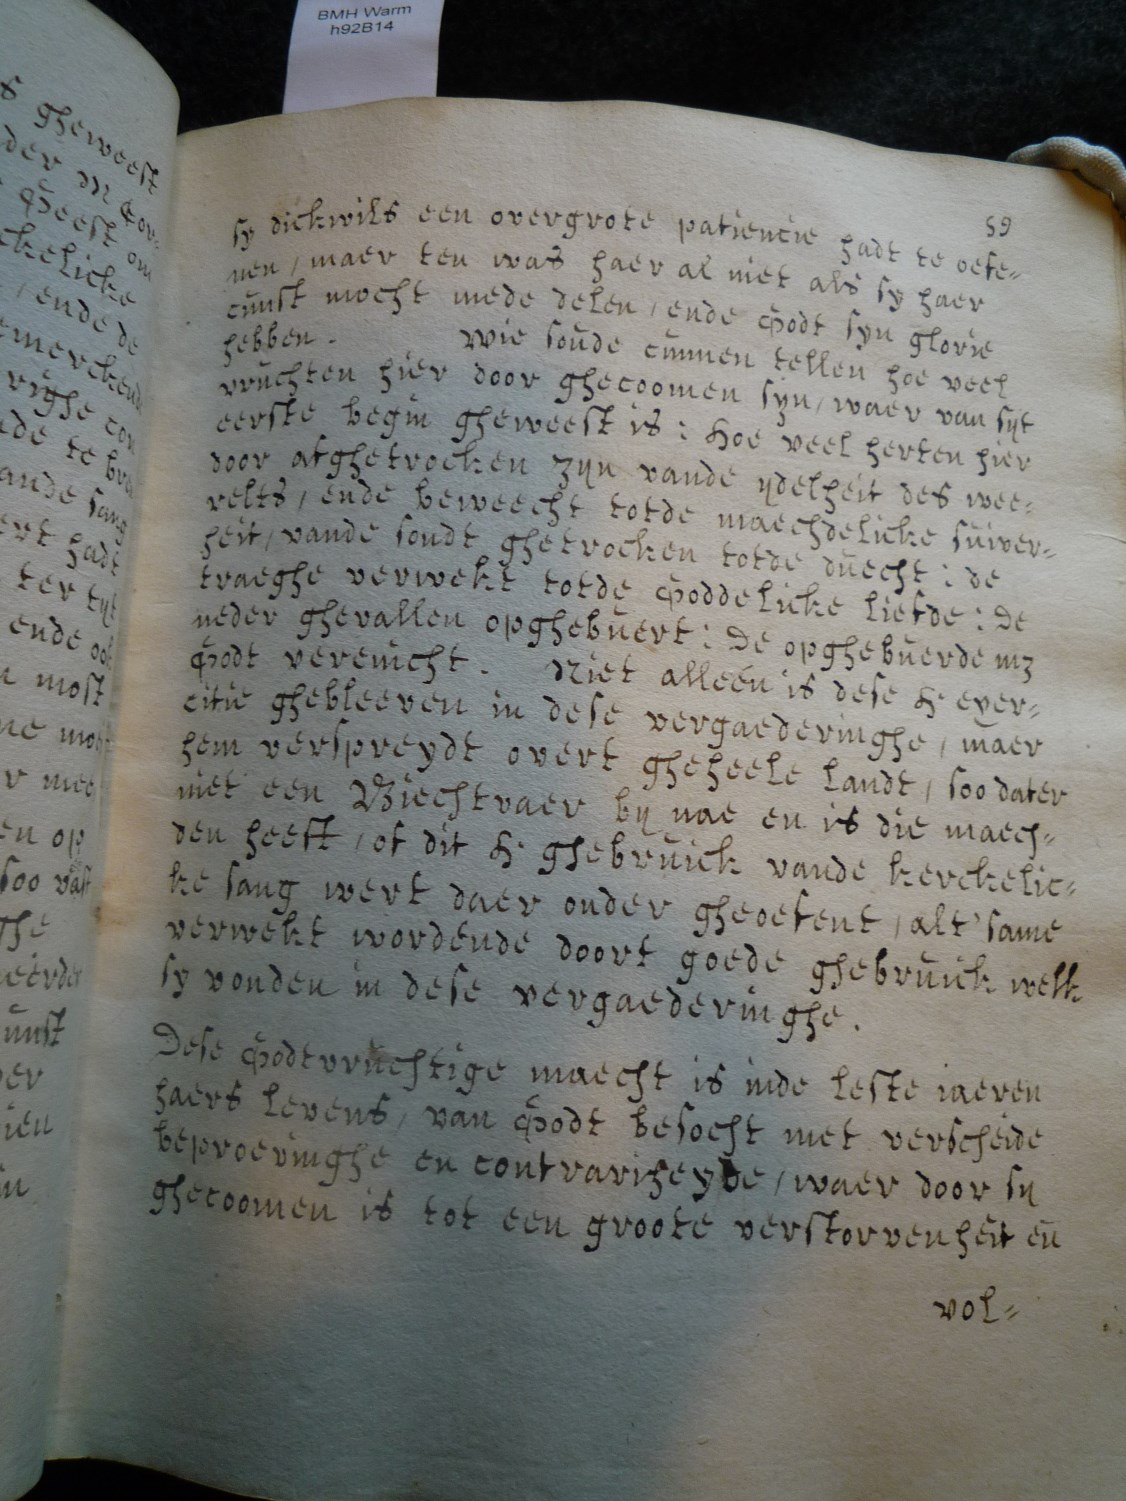 BMH Warm
h92B14
59
sy dickwils een overgrote patiencie hadt te oefe-
nen / maer ten was haer al niet als sy haer
cunst mocht mede delen / ende Godt syn glorie
hebben. Wie soude cunnen tellen hoe veel
vruchten hier door ghecoomen syn / waer van syt
eerste begin gheweest is : Hoe veel herten hier
door afghetrocken zijn vande ydelheit des wee-
relts / ende beweecht totde maechdelicke suiver-
heit / vande sondt ghetrocken totde duecht : de
traeghe verwekt totde Goddelicke liefde : De
neder ghevallen opghebuert : De opghebuerde mz
Godt verenicht. Niet alleen is dese H exer-
citie ghebleeven in dese vergaederinghe / maer
hem verspreydt overt gheheele landt / soo dater
niet een Biechtvaer bij nae en is die maech-
den heeft / of dit H ghebruick vande kerckelic-
ke sang wert daer onder gheoefent / alt'same
verwekt wordende doort goede ghebruick welk
sy vonden in dese vergaederinghe.
Dese Godtvruchtige maecht is inde leste iaeren
haers levens / van Godt besocht met verscheide
beproevinghe en contrariheyde / waer door sij
ghecoomen is tot een groote verstorvenheit en̄
vol-
s gheweest
Geest om
ckelicke
/ ende de
emerckende
ande sang
ert hadt
ter tijt
ende ook
most
r mee
en op
soo vast
ghe